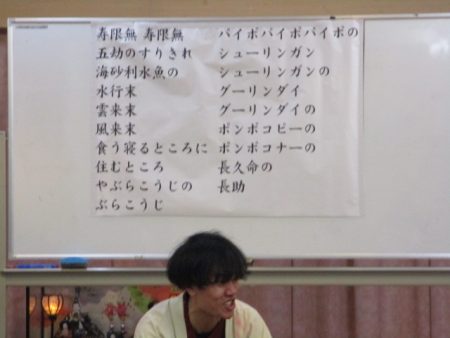 寿限無 寿限無
五劫のすりきれ
海砂利水魚の
水行末
雲来末
風来末
食う寝るところに
住むところ
やぶらこうじの
ぶらこうじ
パイポパイポパイポの
シューリンガン
シューリンガンの
グーリンダイ
グーリンダイの
ポンポコピーの
ポンポコナーの
長久命の
長助